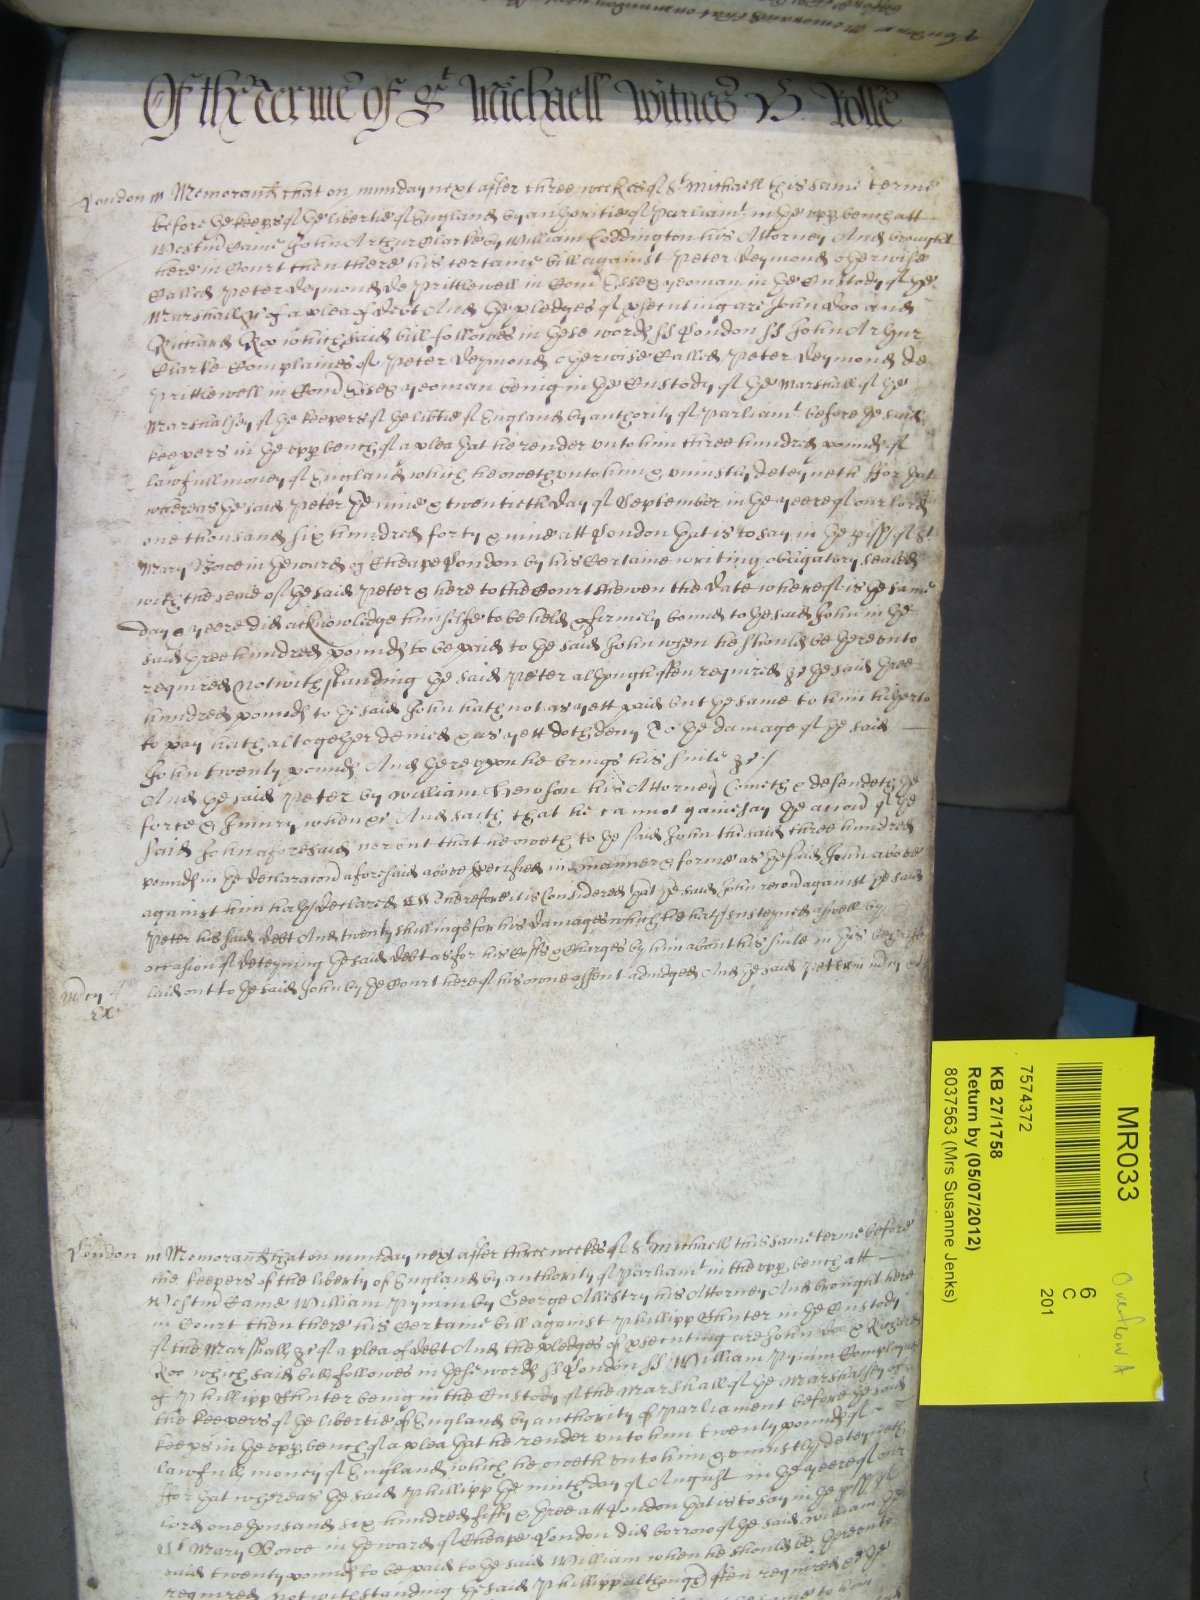 Of the terme of St Michaell Witnes H. Rolle
London ss Memorand that on munday next after three weekes of St Michaell this same terme
before the keeps of the libertie of England by authoritie of Parliamt in the upp bench att
Westm Came John Arthur Clarke by William Coddington his Attorney And brought
here in Court then there his certaine bill against Peter Deymond otherwise
Called Peter Deymond de Prittlewell in Com Essex yeoman in the Custody of the
Marshall &c of a plea of debt And the pledges of psecuting are John Doo and
Richard Roo which said bill followes in these words ss London ss John Arthur
Clarke Complaines of Peter Deymond otherwise Called Peter Deymond de
Prittlewell in Com Essex yeoman being in the Custody of the Marshall of the
Marshalsey of the keepers of the libtie of England by authority of Parliamt before the said
keepers in the upp bench of a plea that he render unto him three hundred pounds of
lawfull money of England which he oweth unto him & uniustly deteyneth ffor that
whereas the said Peter the nine & twentieth day of September in the yeere of our lord
one thousand six hundred forty & nine att London that is to say in the pish of St
Mary Bowe in the ward of Cheape London by his Certaine writing obligatory sealed
with the seale of the said Peter & here to the Court shewen the date whereof is the same
day & yeere did acknowledge himselfe to be held & firmely bound to the said John in the
said three hundred pounds to be paid to the said John when he should be thereunto
required Notwithstanding the said Peter although often required &c the said three
hundred pounds to the said John hath not as yett paid but the same to him hitherto
to pay hath altogether denied & as yett doth deny To the damage of the said
John twenty pounds And thereupon he brings his suite &c
And the said Peter by William Hewson his Attorney Cometh & defendeth the
force & Iniury when &c And saith that he cannot gainesay the accon of the
said John aforesaid nor but that he oweth to the said John the said three hundred
pounds in the declaracon aforesaid above specified in manner & forme as the said John above
against him hath declared Therefore it is Considered that the said John recov against the said
Peter his said debt And twenty shillings for his damages which he hath susteyned aswell by
occasion of deteyning the said debt as for his Costs & Charges by him about his suite in this behalfe
laid out to the said John by the Court here of his owne assent adiudged And the said Peter in mcy &c
London ss Memorand that on munday next after three weekes of St Michaell this same terme before
the keepers of the liberty of England by authority of Parliamt in the upp bench att
Westm Came William Pymm by George Allestry his Attorney And brought here
in Court then there his Certaine bill against Phillipp Shuter in the Custody
of the Marshall &c of a plea of debt And the pledges of psecuting are John Doo & Richard
Roo which said bill followes in these words ss London ss William Pymm Complaines
of Phillipp Shuter being in the Custody of the Marshall of the Marshalsey of
the keepers of the libertie of England by authority of Parliament before the said
keeps in the upp bench of a plea that he render unto him twenty pounds of
lawfull money of England which he oweth unto him & uniustly deteyneth
ffor that whereas the said Phillipp the ninth day of August in the yeere of our
lord one thousand six hundred fifty & three att London that is to say in the pish of
St Mary Bowe in the ward of Cheape London did borrow of the said William the
said twenty pounds to be paid to the said William when he should be thereunto
required Notwithstanding the said Phillipp although often required &c the
MR033
7574372
KB 27/1758
Return by (05/07/2012)
8037563 (Mrs Susanne Jenks)
6
C
201
Overflow A